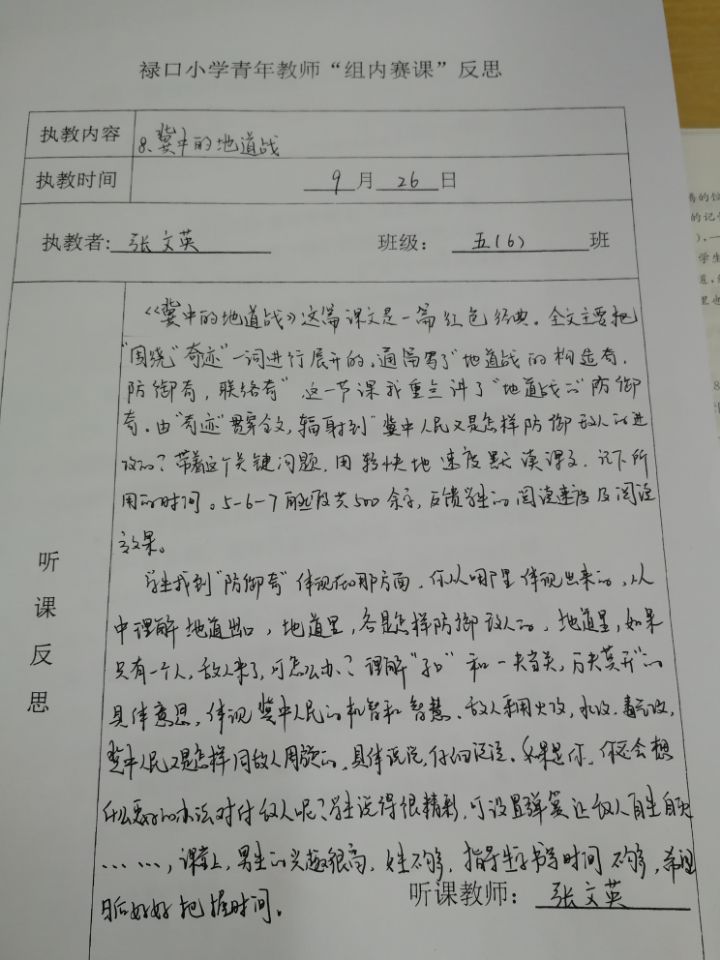 禄口小学青年教师“组内赛课”反思
执教内容 8、冀中的地道战
执教时间 9 月 26 日
执教者: 张文英 班级: 五(6) 班
听课反思
《冀中的地道战》这篇课文是一篇红色经典。全文主要把
“围绕“奇迹”一词进行展开的,通篇写了“地道战的构造奇,
防御奇,联络奇”这一节课我重点讲了“地道战的”防御
奇。由“奇迹”贯穿全文,辐射到“冀中人民又是怎样防御敌人的进
攻的?带着这个关键问题,用较快地速度默读课文,记下所
用的时间。5-6-7 共500余字,反馈学生的阅读速度及阅读
效果。
学生找到“防御奇”体现在哪方面,你从哪里体现出来的,从
中理解地道出口,地道里,各是怎样防御敌人的,地道里,如果
只有一个人,敌人来了,可怎么办?理解“孑口”和一夫当关,万夫莫开”的
具体意思,体现冀中人民的机智和智慧、敌人采用火攻,水攻、毒气攻,
冀中人民又是怎样同敌人周旋的,具体说说,仔细说说。如果是你,你还会想
什么更好的办法对付敌人呢?学生说得很精彩,可设置弹簧让敌人自生自灭
……,课堂上,男生的兴趣很高,女生不够,指导生字书写时间不够,希望
日后好好把握时间。
听课教师: 张文英